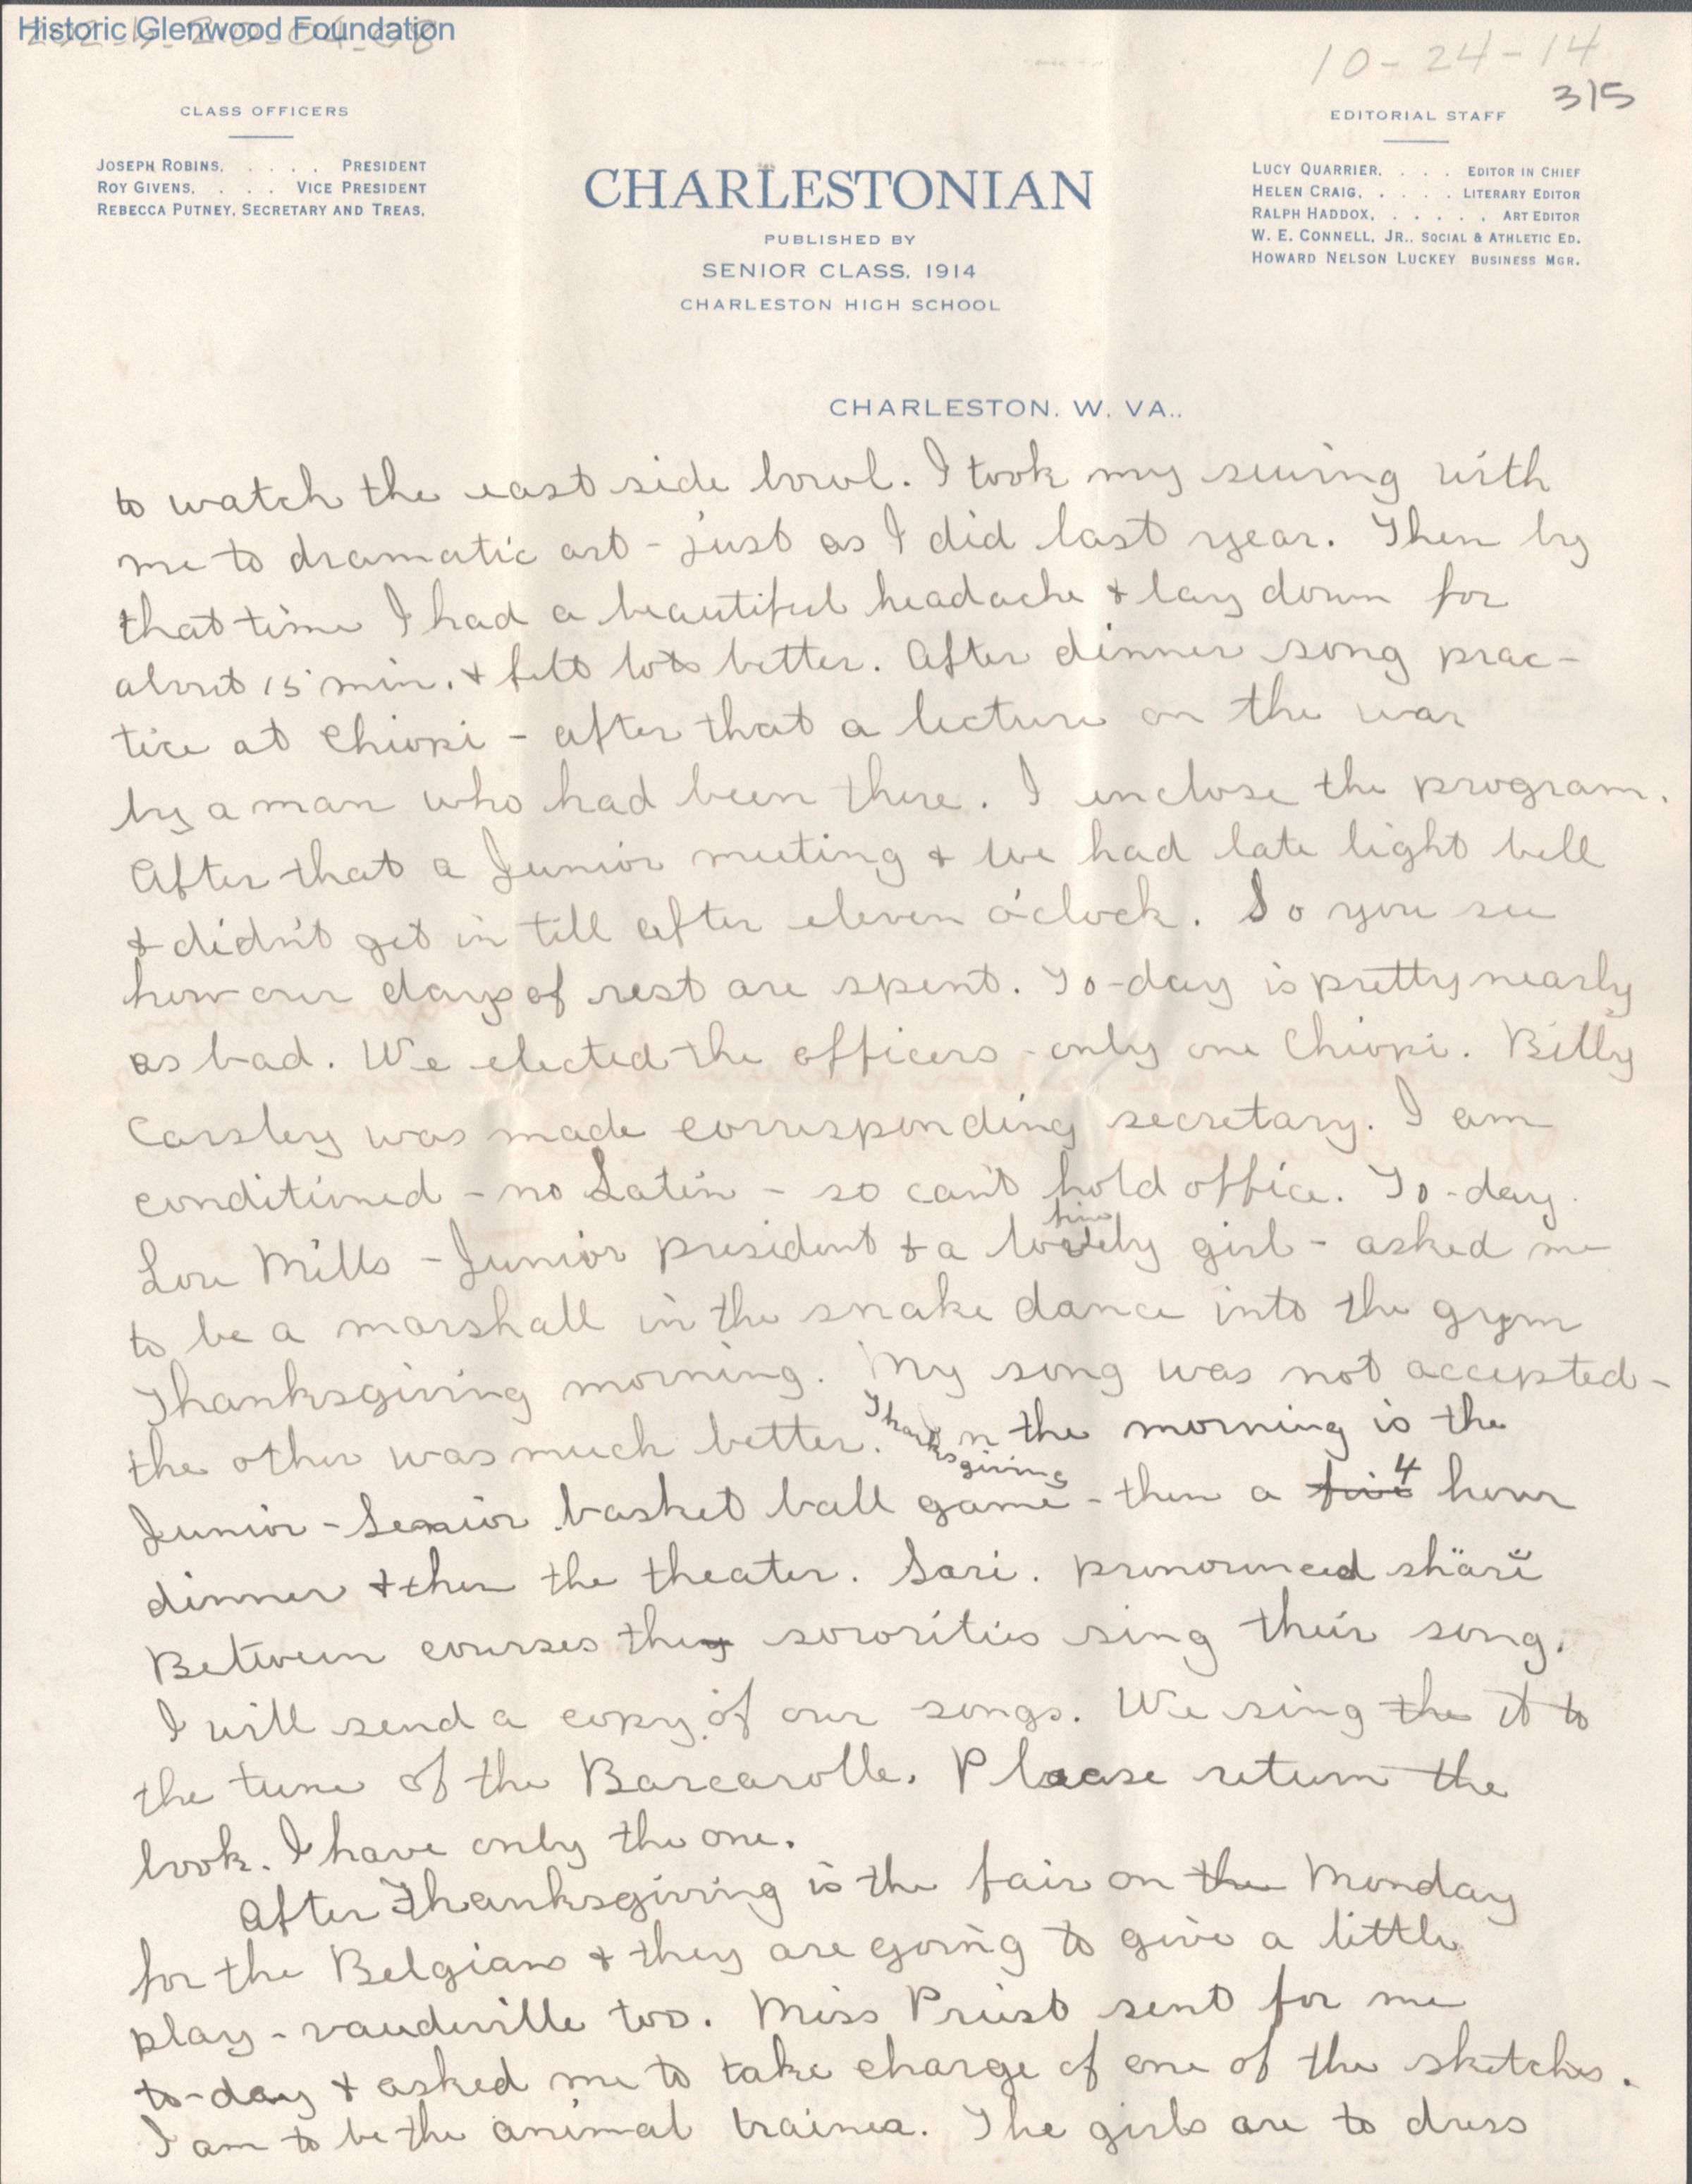 Historic Glenwood Foundation
10-24-14
315
CLASS OFFICERS
JOSEPH ROBINS, . . . . PRESIDENT
ROY GIVENS, . . . VICE PRESIDENT
REBECCA PUTNEY, SECRETARY AND TREAS.
CHARLESTONIAN
PUBLISHED BY
SENIOR CLASS, 1914
CHARLESTON HIGH SCHOOL
EDITORIAL STAFF
LUCY QUARRIER, . . . EDITOR IN CHIEF
HELEN CRAIG, . . . . LITERARY EDITOR
RALPH HADDOX, . . . . . ART EDITOR
W. E. CONNELL, JR., SOCIAL & ATHLETIC ED.
HOWARD NELSON LUCKEY BUSINESS MGR.
CHARLESTON, W. VA.,
to watch the east side bowl. I took my sewing with
me to dramatic art - just as I did last year. Then by
that time I had a beautiful headache & lay down for
about 15 min. & felt lots better. After dinner song prac-
tice at Chiopi - after that a lecture on the war
by a man who had been there. I enclose the program.
After that a Junior meeting & we had late light bell
& didn't get in till after eleven o'clock. So you see
how our days of rest are spent. To-day is pretty nearly
as bad. We elected the officers - only one Chiopi. Billy
Carsley was made corresponding secretary. I am
conditioned - no Latin - so can't hold office. To-day
Lou Mills - Junior president & a lovely girl - asked me
to be a marshall in the snake dance into the gym
Thanksgiving morning. My song was not accepted -
the other was much better. Thanksgiving in the morning is the
Junior - Senior basket ball game - then a five 4 hour
dinner & then the theater. Sari. pronounced shäri
Between courses they sororities sing their song.
I will send a copy of our songs. We sing the it to
the tune of the Barcarolle. Please return the
book. I have only the one.
After Thanksgiving is the fair on the Monday
for the Belgians & they are going to give a little
play - vaudeville too. Miss Priest sent for me
to-day & asked me to take charge of one of the sketches.
I am to be the animal trainer. The girls are to dress